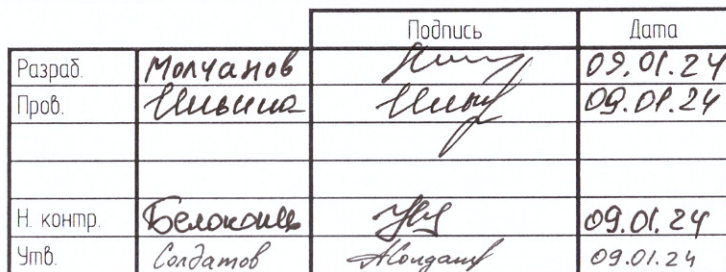 Подпись Дата
Разраб. Молчанов 09.01.24
Пров. Ильина 09.01.24
Н. контр. 09.01.24
Утв. Солдатов 09.01.24